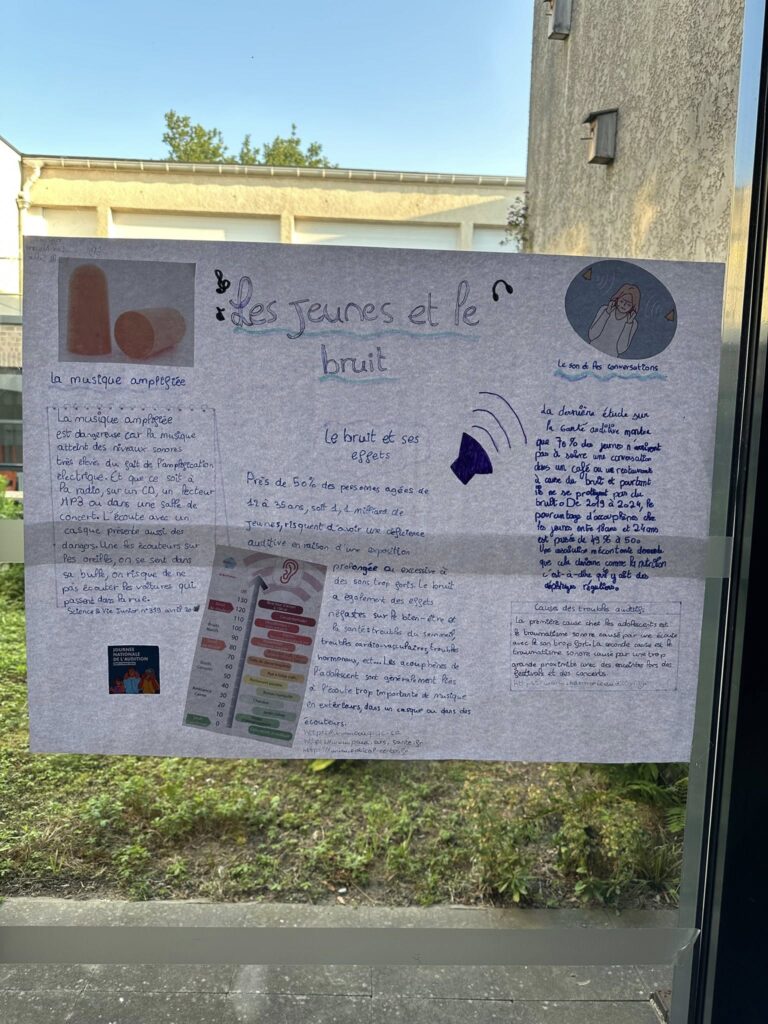 Les jeunes et le
bruit
la musique amplifiée
La musique amplifiée
est dangereuse car la musique
atteint des niveaux sonores
très élevés du fait de l'amplification
électrique. Et que ce soit à
la radio, sur un CD, un lecteur
MP3 ou dans une salle de
concert. L'écoute avec un
casque présente aussi des
dangers. Une fois écouteurs sur
les oreilles, on se sent dans
sa bulle, on risque de ne
pas écouter les voitures qui
passent dans la rue.
Science & Vie Junior n°
JOURNÉE
NATIONALE
DE L'AUDITION
Le bruit et ses
effets
Près de 50% des personnes agées de
12 à 35 ans, soit 1,1 milliard de
jeunes, risquent d'avoir une déficience
auditive en raison d'une exposition
prolongée ou excessive à
des sons trop forts. Le bruit
a également des effets
néfastes sur le bien-être et
la santé: troubles du sommeil,
troubles cardiovasculaires, troubles
hormonaux, etc... Les acouphènes de
l'adolescent sont généralement liés
à l'écoute trop importante de musique
en extérieurs, dans un casque ou dans des
écouteurs.
130
120
110
100
90
80
70
60
50
40
30
20
10
0
Le son des conversations
La dernière étude sur
la santé auditive montre
que 70% des jeunes n'arrivent
pas à suivre une conversation
dans un café ou un restaurant
à cause du bruit et pourtant
ils ne se protègent pas du
bruit. De 2019 à 2024, le
pourcentage d'acouphènes chez
les jeunes entre 18ans et 24ans
est passée de 19% à 50%
Une association mécontente demande
que cela devienne comme la nutrition
c'est-à-dire qu'il y ait des
dépistages réguliers.
Cause des troubles auditifs:
La première cause chez les adolescents est
le traumatisme sonore causé par une écoute
avec le son trop fort. La seconde cause est le
traumatisme sonore causé par une trop
grande proximité avec des enceintes lors des
festivals et des concerts.